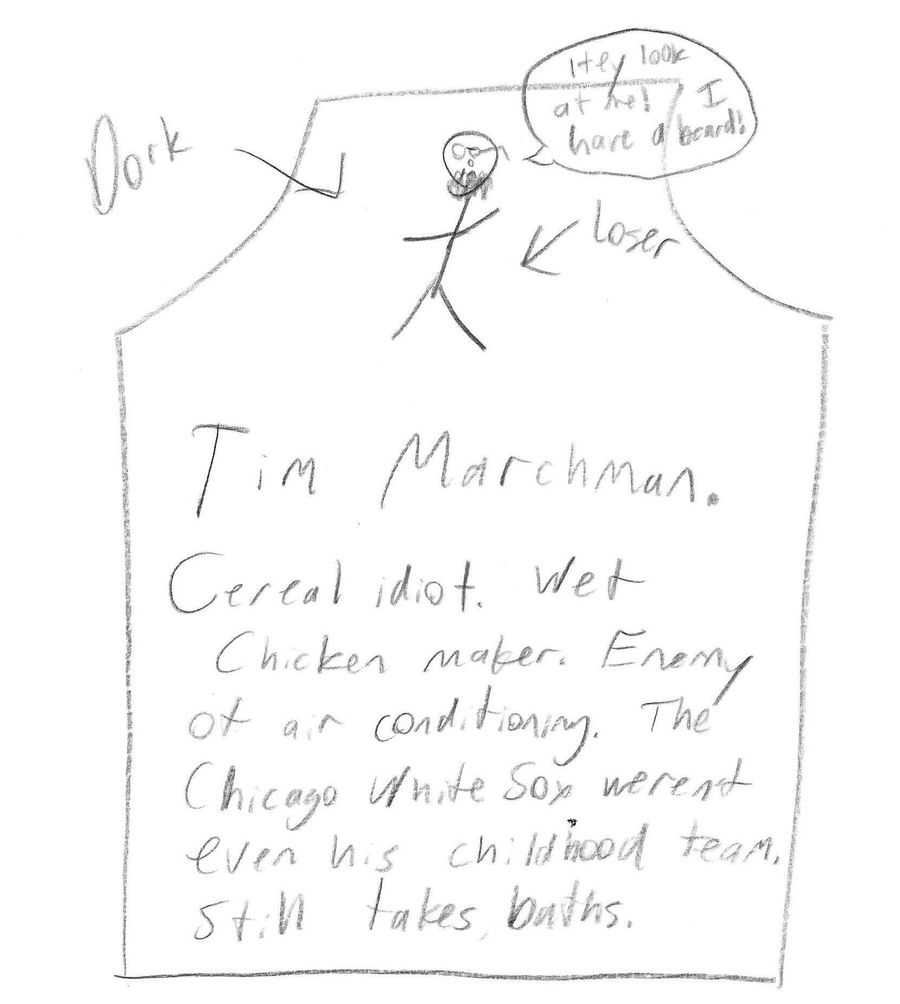 Hey look
at me! I
have a beard!
Dork
Loser
Tim Marchman.
Cereal idiot. Wet
Chicken maker. Enemy
of air conditioning. The
Chicago White Sox werent
even his childhood team.
Still takes baths.